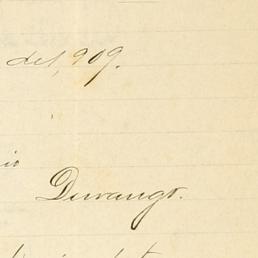 del, 909.
io
Durango.